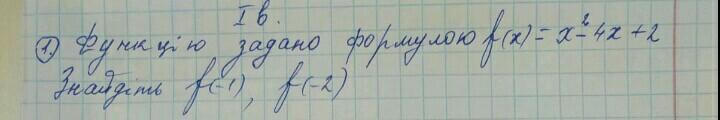 I в.
1. Функцію задано формулою f(x) = x² - 4x + 2
Знайдіть f(-1), f(-2)